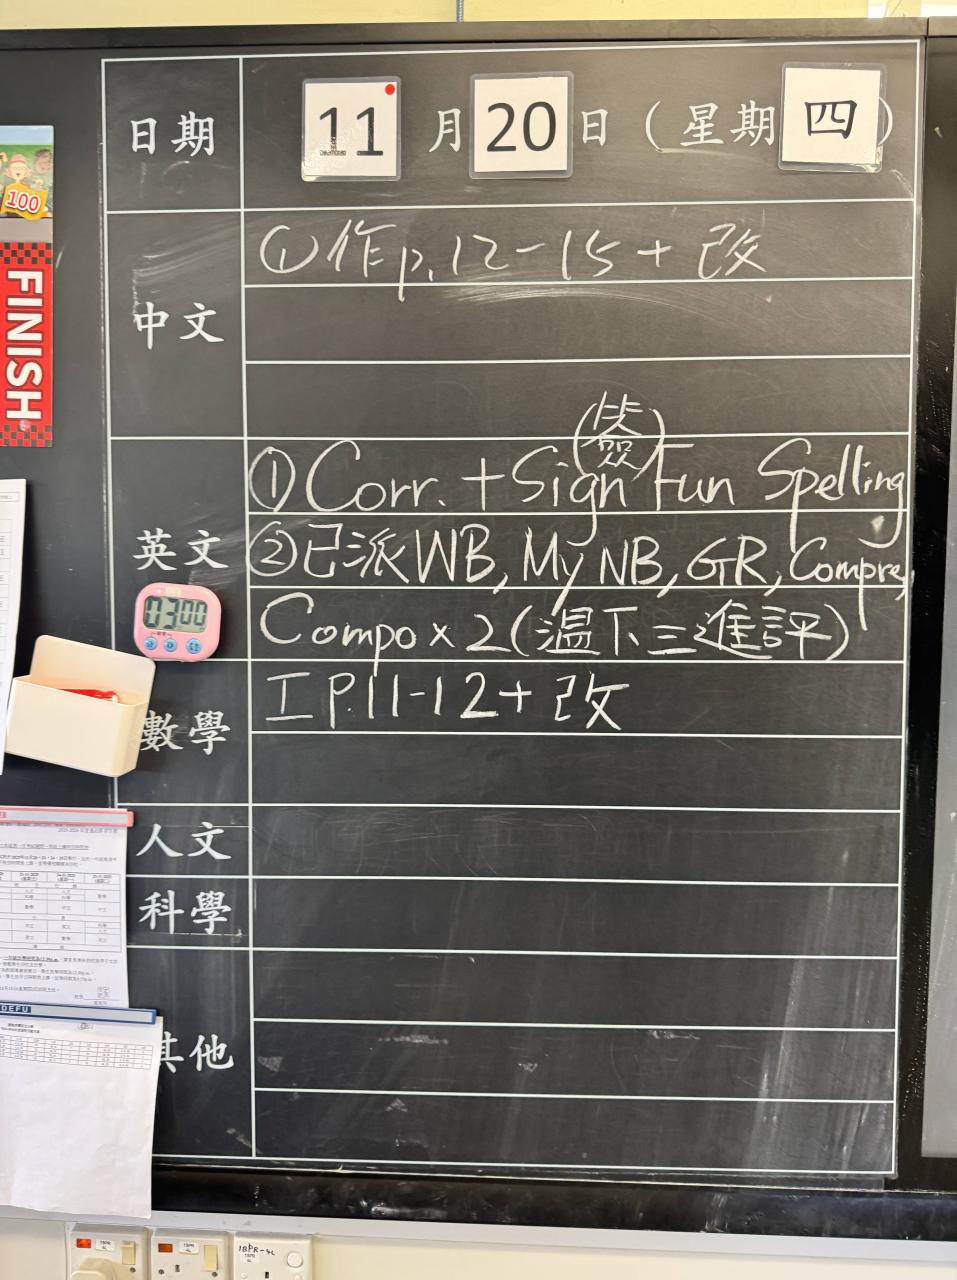 日期 11 月 20 日 ( 星期 四 )
100
FINISH
中文
① 作 p.12-15 + 改
英文
(簽)
① Corr. + Sign Fun Spelling
② 已派 WB, My NB, GR, Compre,
Compo x 2 (溫下三進評)
03:00
數學
工 P.11-12 + 改
人文
科學
其他
DEFU
1BPR-4L